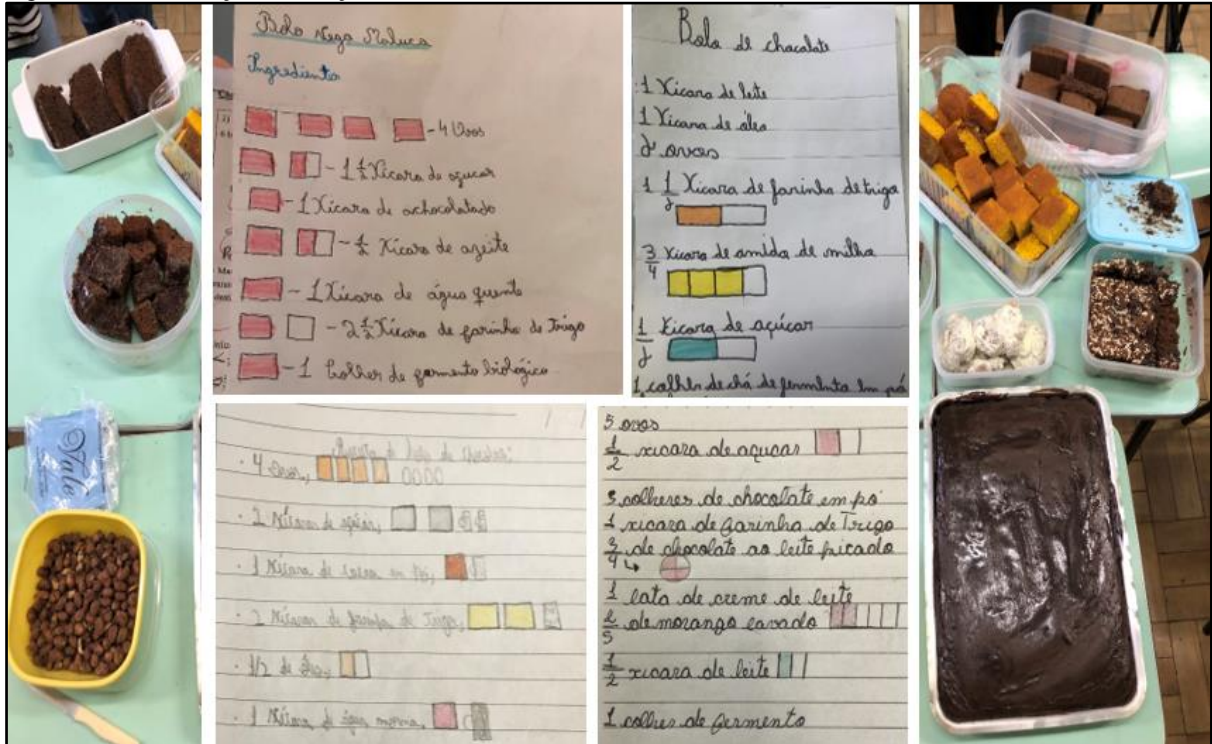 Bolo Nega Maluca
Ingredientes
- 4 Ovos
- 1 1/2 Xícara de açucar
- 1 Xícara de achocolatado
- 1/2 Xícara de azeite
- 1 Xícara de água quente
- 2 1/2 Xícara de farinha de Trigo
- 1 Colher de fermento biológico
Bolo de chocolate
1 Xicara de leite
1 Xicara de óleo
2 ovos
1 1/2 Xicara de farinha de trigo
3/4 xicara de amido de milho
1/2 Xicara de açúcar
1 colher de chá de fermento em pó
. 4 Ovos,
. 2 Xícaras de
. 1 Xícara de em Pó,
. 2 Xícaras de de Trigo,
. 1/2 de
. 1 Xícara de água morna,
5 ovos
1/2 xicara de açucar
3 colheres de chocolate em pó
1 xicara de farinha de Trigo
3/4 de chocolate ao leite picado
1 lata de creme de leite
de morango lavado
1/2 xicara de leite
1 colher de fermento